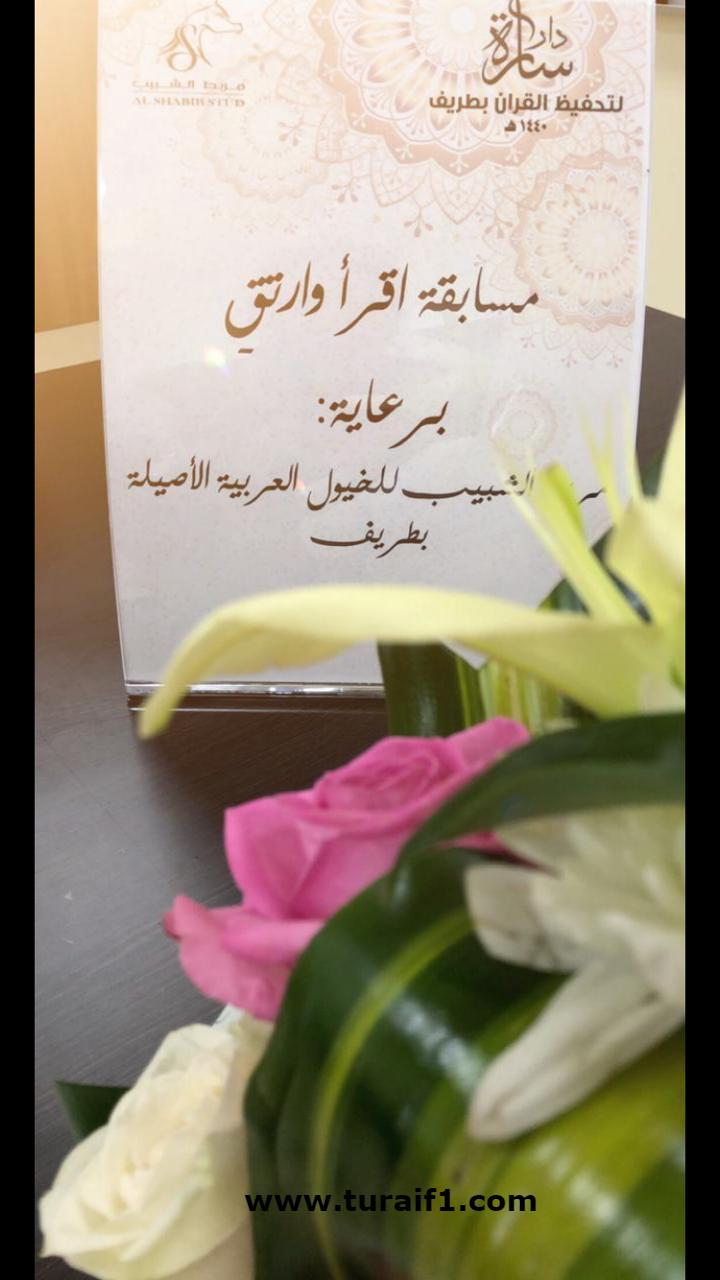 دار
سارة
لتحفيظ القران بطريف
١٤٤٠ هـ
مربط الشبيب
AL SHABIB STUD
مسابقة اقرأ وارتقِ
برعاية:
الشبيب للخيول العربية الأصيلة
بطريف
www.turaif1.com